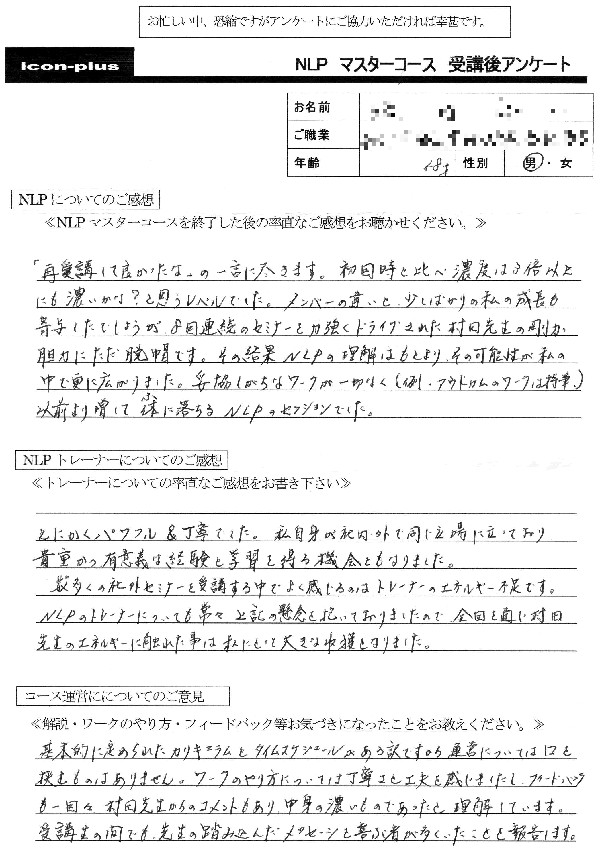 お忙しい中、恐縮ですがアンケートにご協力いただければ幸甚です。
icon-plus
NLP マスターコース 受講後アンケート
お名前
ご職業
年齢 48才 性別 男・女
NLPについてのご感想
≪NLPマスターコースを終了した後の率直なご感想をお聴かせください。≫
「再受講して良かったな」の一言に尽きます。初回時と比べ濃度は3倍以上
にも濃いかな?と思うレベルでした。メンバーの違いと、少しばかりの私の成長も
寄与したでしょうが、8回連続のセミナーを力強くドライブされた村田先生の剛力
胆力にただ脱帽です。その結果NLPの理解はもとより、その可能性が私の
中で更に広がりました。妥協しがちなワークが一切なく(例・アウトカムのワークは特筆)
以前より増して体に落ちるNLPのセッションでした。
NLPトレーナーについてのご感想
≪トレーナーについての率直なご感想をお書き下さい≫
とにかくパワフル&丁寧でした。私自身が社内・外で同じ立場に立っており
貴重かつ有意義な経験と学習を得る機会ともなりました。
数多くの社外セミナーを受講する中でよく感じるのはトレーナーのエネルギー不足です。
NLPのトレーナーについても常々上記の懸念を抱いておりましたので今回を通じ村田
先生のエネルギーに触れた事は私にとって大きな収穫となりました。
コース運営にについてのご意見
≪解説・ワークのやり方・フィードバック等お気づきになったことをお教えください。≫
基本的に定められたカリキュラムとタイムスケジュールがある訳ですから運営については口を
挟むものはありません。ワークのやり方については丁寧さと工夫を感じましたし、フィードバック
も一回々村田先生からのコメントもあり、中身の濃いものであったと理解しています。
受講生の間でも、先生の踏み込んだメッセージを喜ぶ者が多くいたことを報告します。